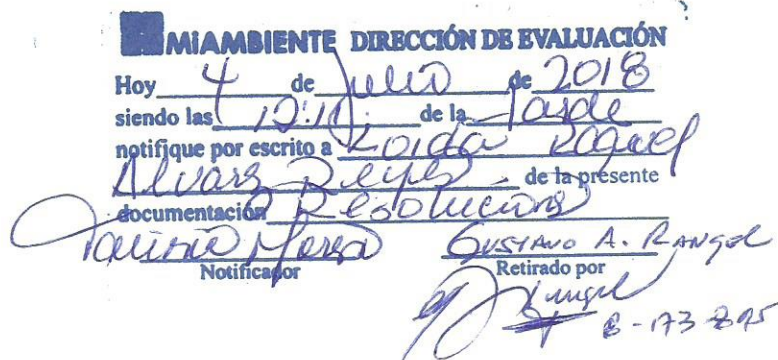 MIAMBIENTE DIRECCIÓN DE EVALUACIÓN
Hoy 4 de Julio de 2018
siendo las 12:11 de la tarde
notifique por escrito a Loida Raquel
Alvarz Reyes de la presente
documentación Resolución
Gustavo A. Rangel
Notificador Retirado por
Rangel
8-173-895